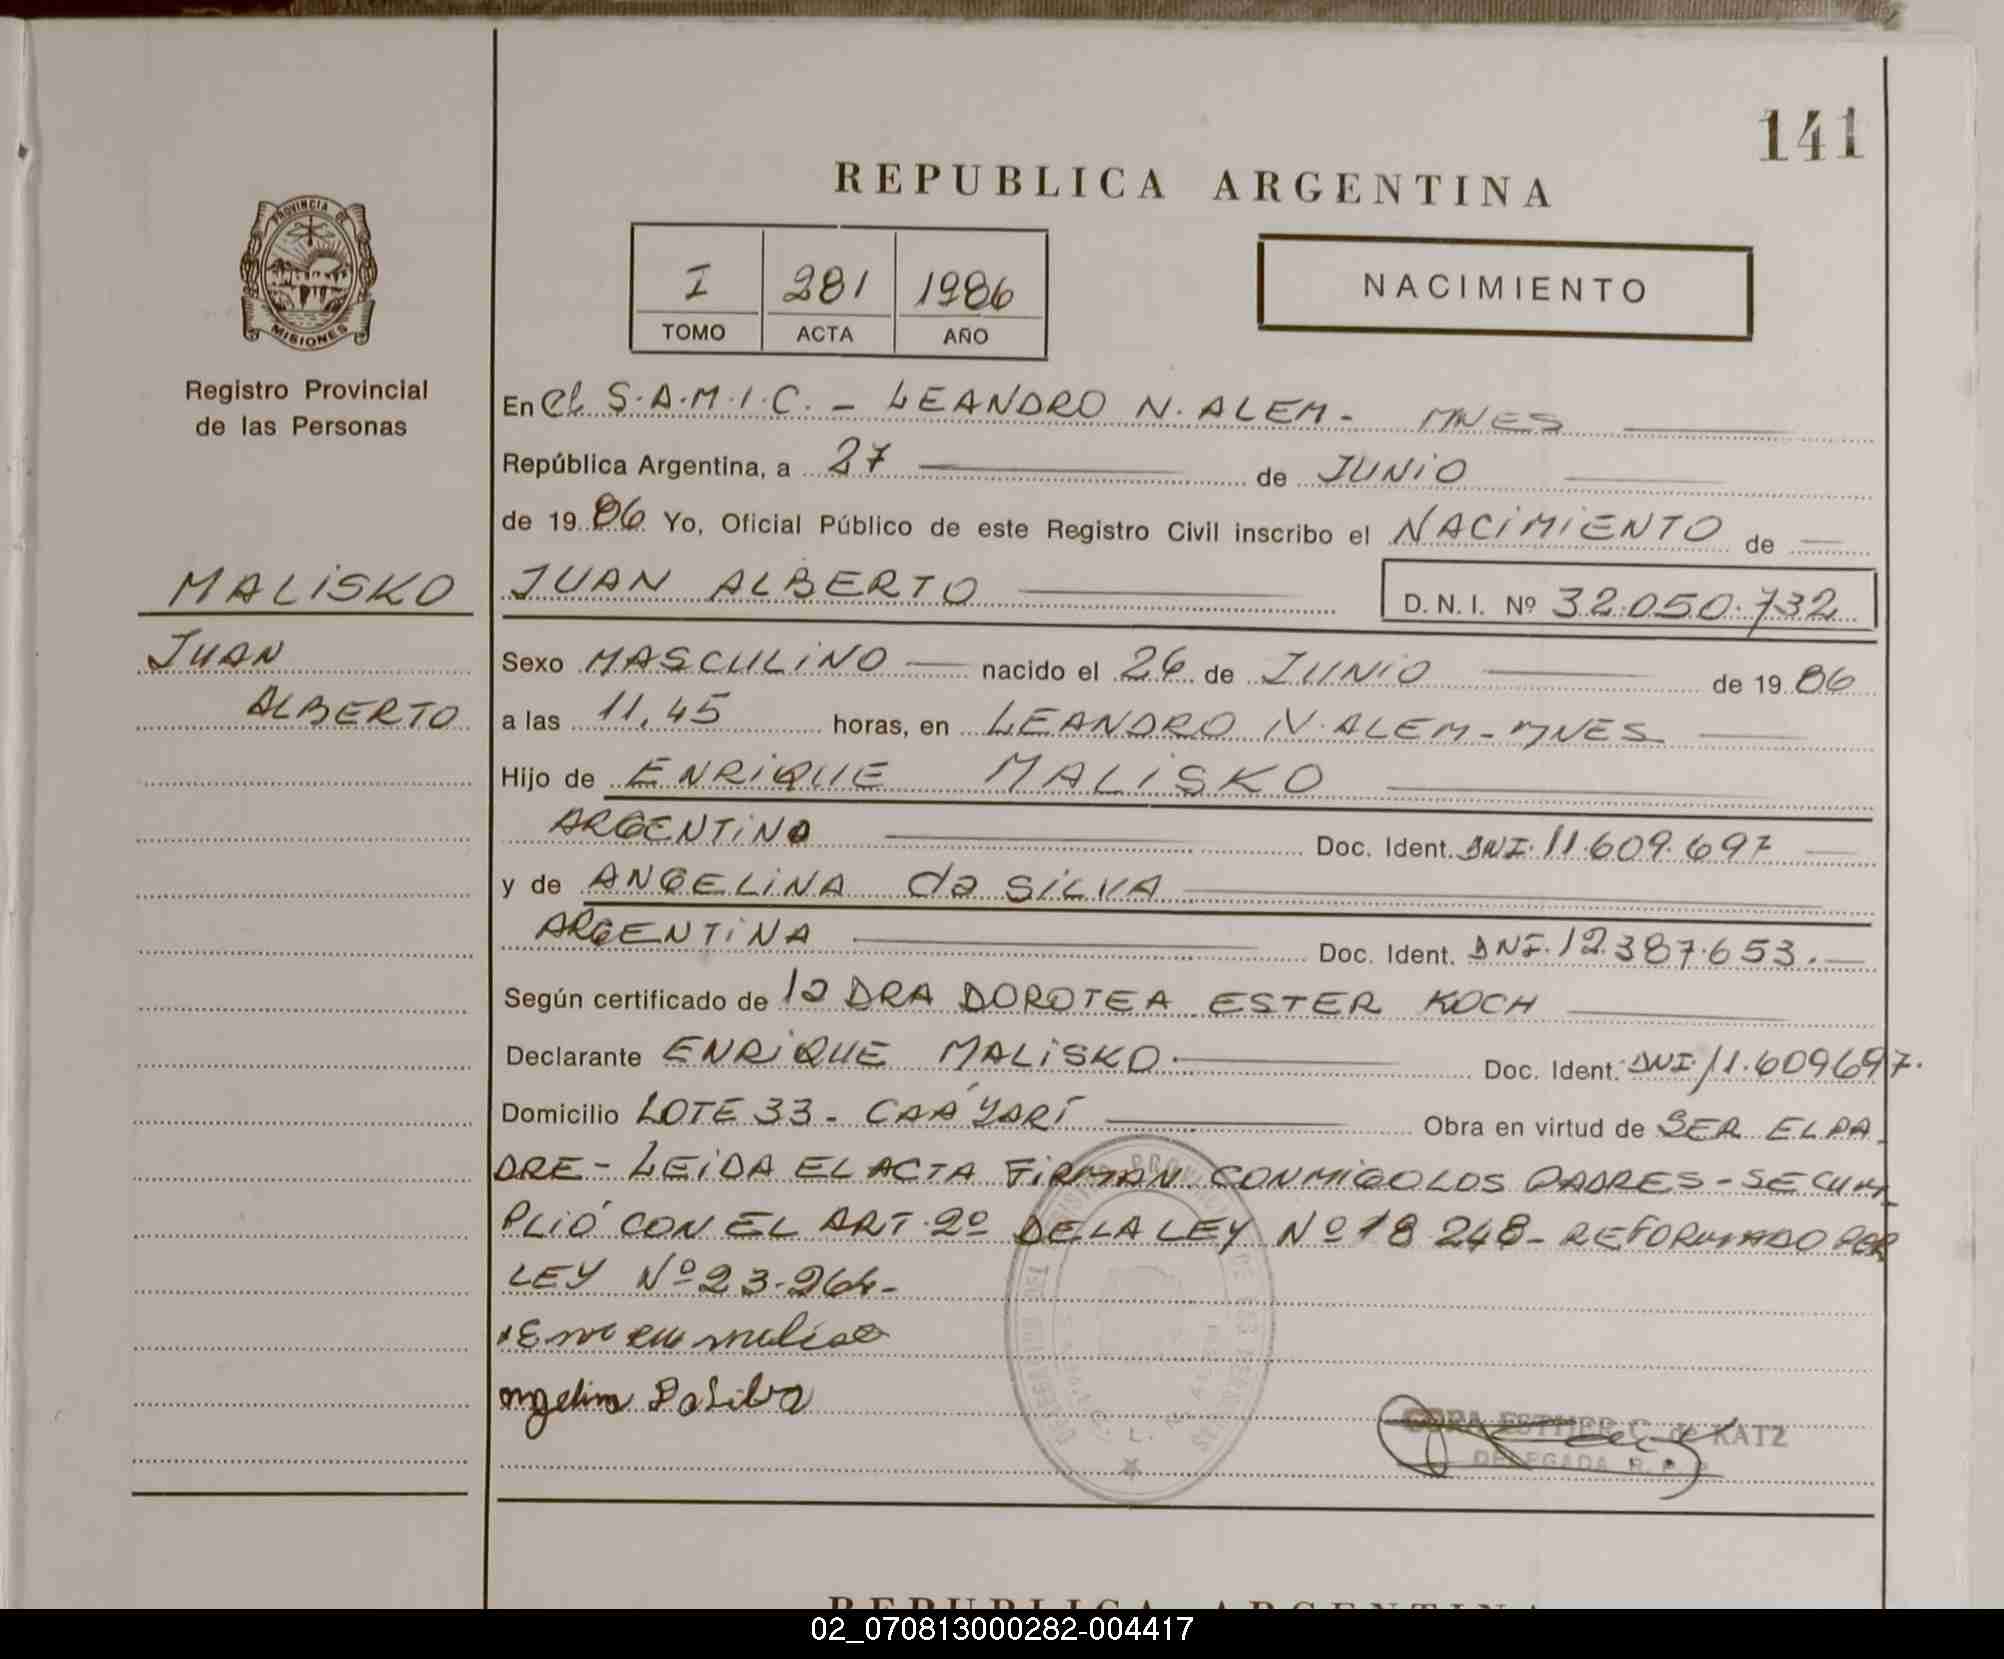 141
REPUBLICA ARGENTINA
PROVINCIA DE
MISIONES
Registro Provincial
de las Personas
I 281 1986
TOMO ACTA AÑO
NACIMIENTO
En el S.A.M.I.C. - LEANDRO N. ALEM - MNES
República Argentina, a 27 de JUNIO
de 1986 Yo, Oficial Público de este Registro Civil inscribo el NACIMIENTO de
MALISKO
JUAN ALBERTO D.N.I. Nº 32.050.732
JUAN
ALBERTO
Sexo MASCULINO nacido el 26 de JUNIO de 1986
a las 11,45 horas, en LEANDRO N. ALEM - MNES
Hijo de ENRIQUE MALISKO
ARGENTINO Doc. Ident. DNI. 11.609.697
y de ANGELINA da SILVA
ARGENTINA Doc. Ident. DNI. 12.387.653.-
Según certificado de la DRA DOROTEA ESTER KOCH
Declarante ENRIQUE MALISKO. Doc. Ident. DNI. 11.609697.
Domicilio LOTE 33 - CAÁ YARÍ Obra en virtud de SER EL PA-
DRE - LEIDA EL ACTA FIRMAN CONMIGO LOS PADRES - SE CUM-
PLIÓ CON EL ART. 2º DE LA LEY Nº 18 248 - REFORMADO POR
LEY Nº 23.264 -
angelina Da Silva
CORA ESTHER C. de KATZ
DELEGADA R. P. P.
REPUBLICA ARGENTINA
02_070813000282-004417